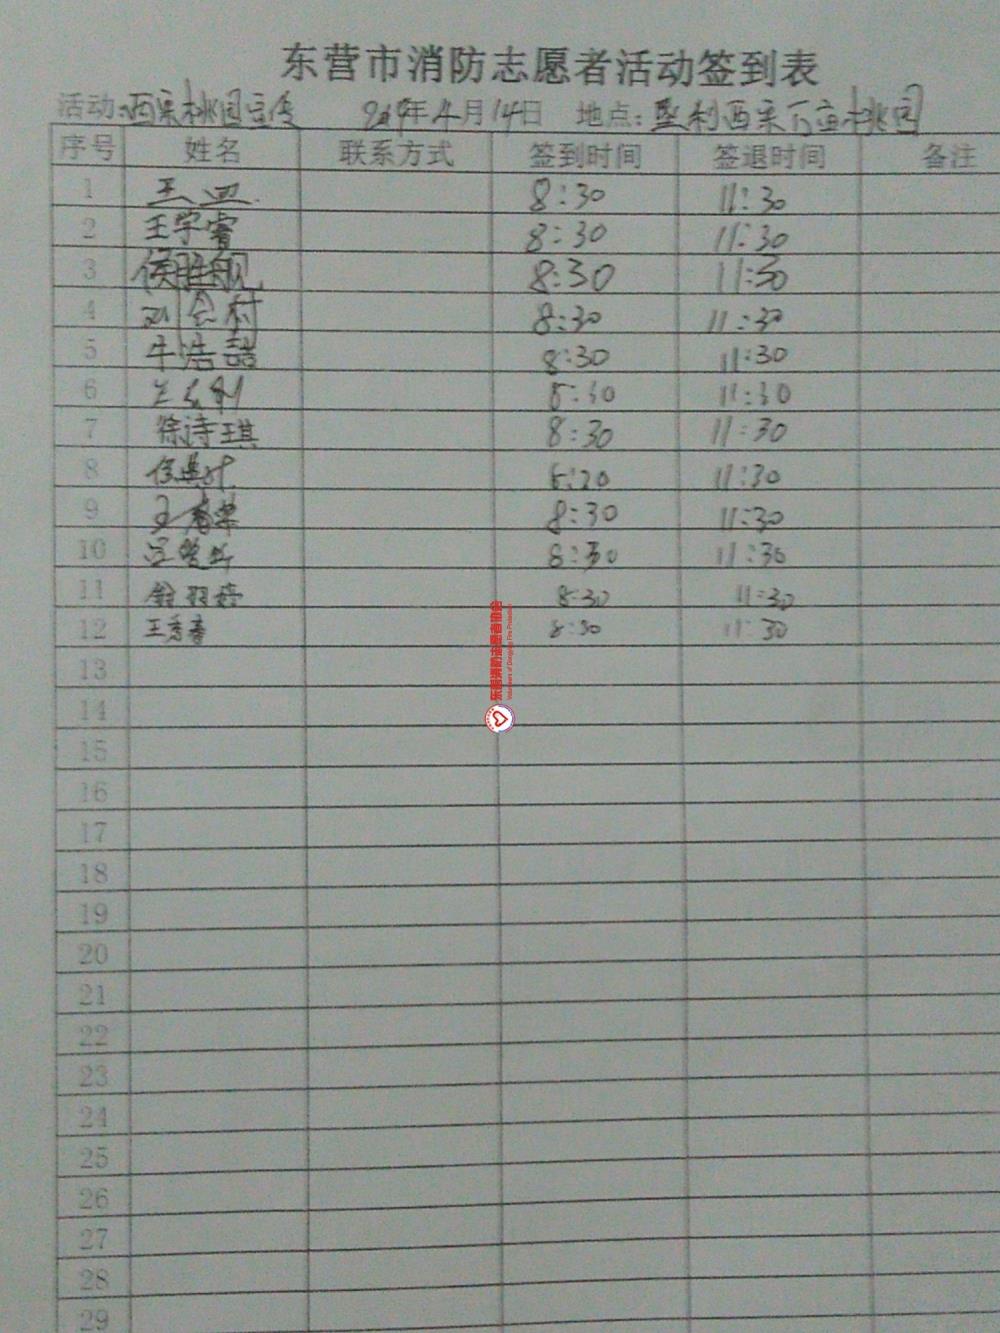 东营市消防志愿者活动签到表
活动:西宋桃园宣传 年4月14日 地点:垦利西宋万亩桃园
序号 姓名 联系方式 签到时间 签退时间 备注
1 8:30 11:30
2 王宇睿 8:30 11:30
3 侯胜舰 8:30 11:30
4 刘会村 8:30 11:30
5 牛浩喆 8:30 11:30
6 8:30 11:30
7 徐诗琪 8:30 11:30
8 11:30
9 8:30 11:30
10 8:30 11:30
11 8:30 11:30
12 王秀春 8:30 11:30
13
14
15
16
17
18
19
20
21
22
23
24
25
26
27
28
29
东营消防志愿者协会
Volunteers of Dongying Fire Protection